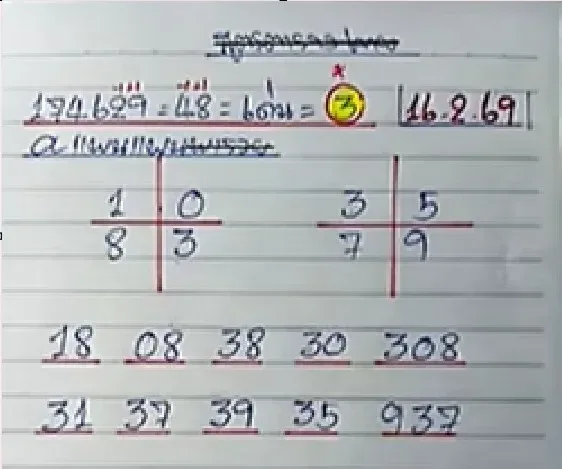 174.629 = 48 = เด่น = 3 16.2.69
1 0 3 5
8 3 7 9
18 08 38 30 308
31 37 39 35 937